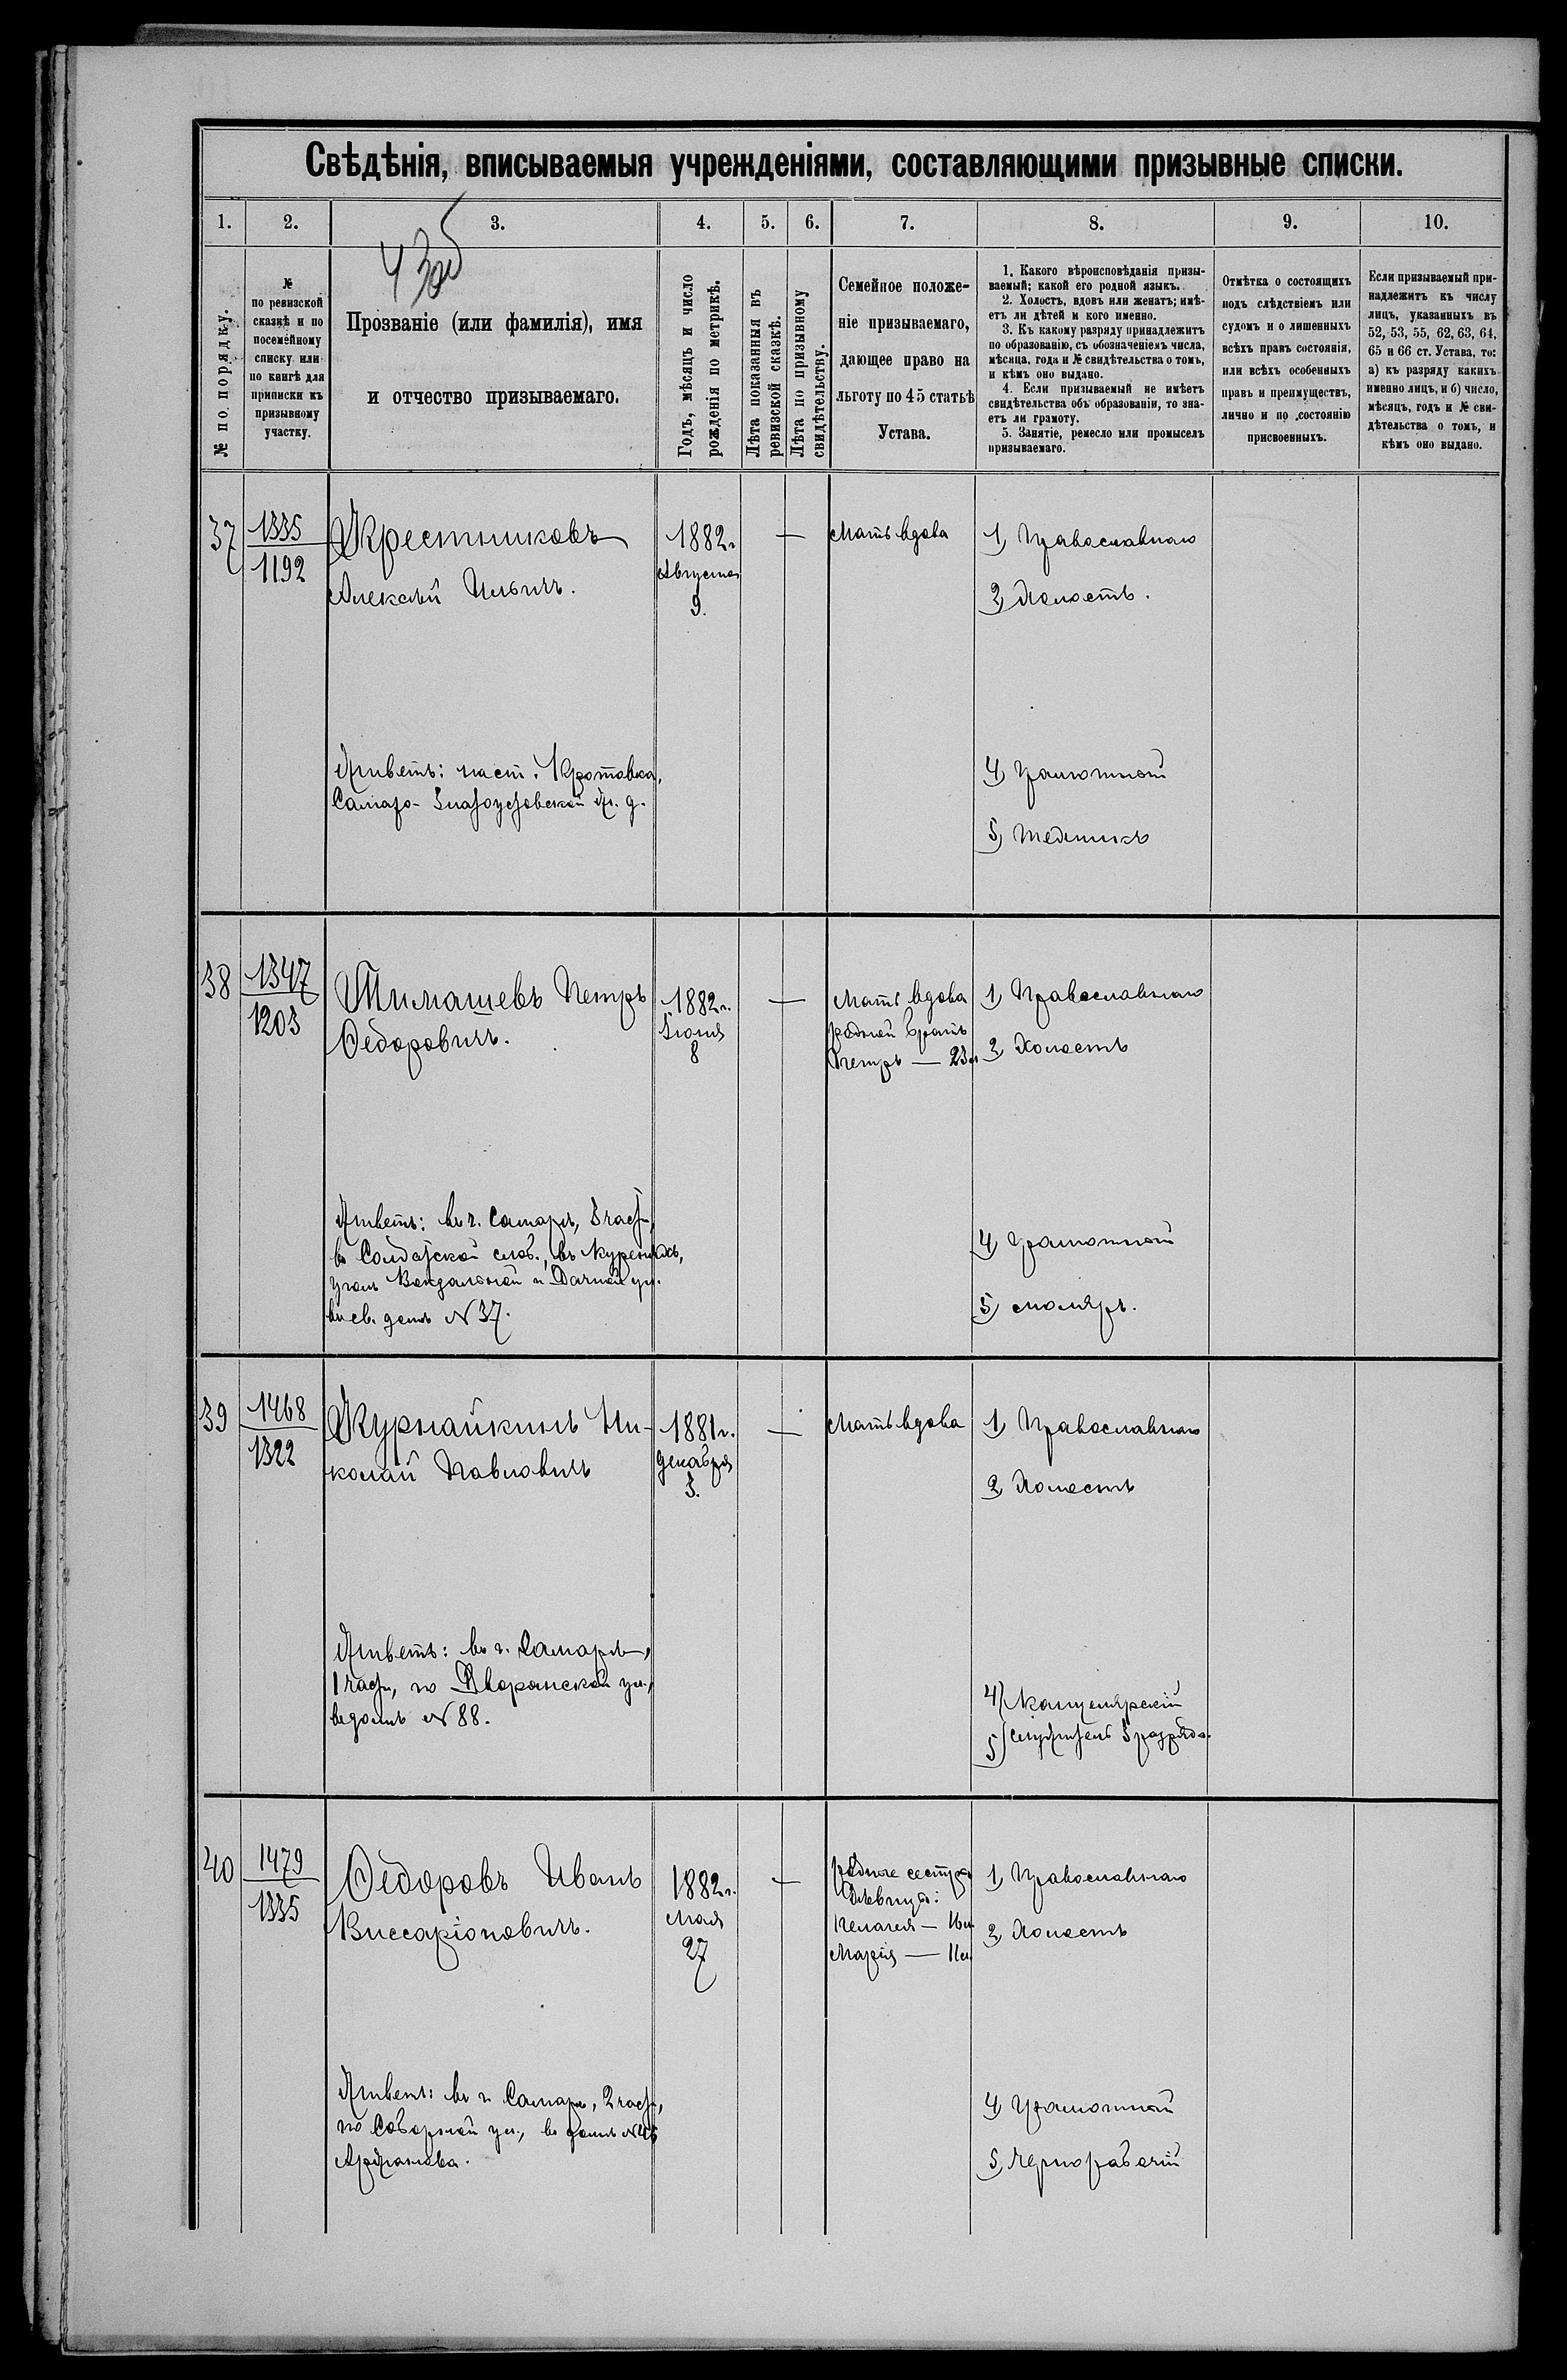 Свѣдѣнія, вписываемыя учрежденіями, составляющими призывные списки.
1. 2. 3. 4. 5. 6. 7. 8. 9. 10.
№ по порядку.
№
по ревизской
сказкѣ и по
посемейному
списку или
по книгѣ для
приписки къ
призывному
участку.
Прозваніе (или фамилія), имя
и отчество призываемаго.
Годъ, мѣсяцъ и число
рожденія по метрикѣ.
Лѣта показанныя въ
ревизской сказкѣ.
Лѣта по призывному
свидѣтельству.
Семейное положе-
ніе призываемаго,
дающее право на
льготу по 45 статьѣ
Устава.
1. Какого вѣроисповѣданія призы-
ваемый; какой его родной языкъ.
2. Холостъ, вдовъ или женатъ; имѣ-
етъ ли дѣтей и кого именно.
3. Къ какому разряду принадлежитъ
по образованію, съ обозначеніемъ числа,
мѣсяца, года и № свидѣтельства о томъ,
и кѣмъ оно выдано.
4. Если призываемый не имѣетъ
свидѣтельства объ образованіи, то зна-
етъ ли грамоту.
5. Занятіе, ремесло или промыселъ
призываемаго.
Отмѣтка о состоящихъ
подъ слѣдствіемъ или
судомъ и о лишенныхъ
всѣхъ правъ состоянія,
или всѣхъ особенныхъ
правъ и преимуществъ,
лично и по состоянію
присвоенныхъ.
Если призываемый при-
надлежитъ къ числу
лицъ, указанныхъ въ
52, 53, 55, 62, 63, 64,
65 и 66 ст. Устава, то:
а) къ разряду какихъ
именно лицъ, и б) число,
мѣсяцъ, годъ и № сви-
дѣтельства о томъ, и
кѣмъ оно выдано.
37
1335
1192
Крестниковъ
Алексѣй Ильичъ.
1882 г.
Августа
9.
—
Мать вдова
1) Православнаго
2) Холостъ.
Живетъ: на ст. Кротовка,
Самаро-Златоустовской ж. д.
4) Грамотный
5)
38
1347
1203
Тимашевъ Петръ
Ѳедоровичъ.
1882 г.
Іюня
8
—
Мать вдова
родной братъ
Петръ — 23 л.
1) Православнаго
2) Холостъ
Живетъ: въ г. Самарѣ, 3 част.,
въ Солдатской слоб.,
уголъ Вокзальной и Дачной ул.
въ св. домѣ № 37.
4) Грамотный
5) столяръ.
39
1468
1322
Журнайкинъ Ни-
колай Павловичъ
1881 г.
декабря
3.
—
Мать вдова
1) Православнаго
2) Холостъ
Живетъ: въ г. Самарѣ,
1 част., по Дворянской ул.,
въ домѣ № 88.
4) Канцелярскій
5) служитель 3 разряда.
40
1479
1335
Ѳедоровъ Иванъ
Виссаріоновичъ.
1882 г.
Мая
27
—
родные сестры
дѣвицы:
Пелагея — 16 л.
Марія — 11 л.
1) Православнаго
2) Холостъ
Живетъ: въ г. Самарѣ, 2 част.,
по Соборной ул., въ домѣ № 46
4) Грамотный
5) Чернорабочій